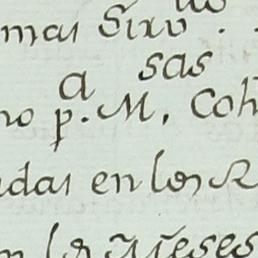 mas Sixo
a sas
no p. M, Coh
das en los R
n los Meses